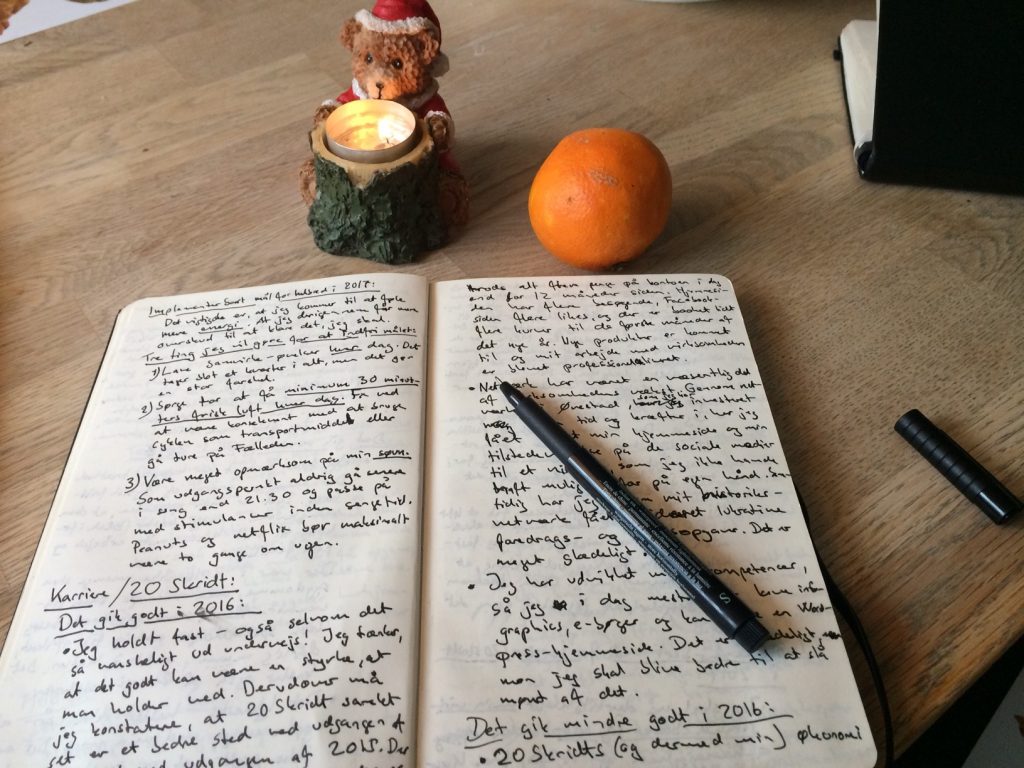 Implementer Surt mål for helbred i 2017:
Det vigtigste er, at jeg kommer til at føle
mere energi. At jeg derigennem får mere
overskud til at blive det, jeg skal.
Tre ting jeg vil gøre for at indfri målet:
1) Lave Sammirke-pauser hver dag. Det
tager slet et kvarter i alt, men det gør
en stor forskel.
2) Sørge for at få minimum 30 minut-
ters frisk luft hver dag. Fx ved
at være konsekvent med at bruge
cyklen som transportmiddel eller
gå ture på Fælleden.
3) Være meget opmærksom på min søvn.
Som udgangspunkt aldrig gå senere
i seng end 21.30 og passe på
med stimulanser inden sengetid.
Peanuts og netflix bør maksimalt
være to gange om ugen.
Karriere/20 Skridt:
Det gik godt i 2016:
• Jeg holdt fast - også selvom det
så vanskeligt ud undervejs! Jeg tænker,
at det godt kan være en styrke, at
man holder ved. Derudover må
jeg konstatere, at 20 Skridt samlet
set er et bedre sted ved udgangen af
udgangen af 2015. Der
alt flere penge på kontoen i dag
end for 12 måneder siden.
den har flere besøgende, Facebook-
siden flere likes, og der er booket lidt
flere kurser til de første måneder af
det nye år. Nye produkter er kommet
til og mit arbejde med virksomheden
er blevet professionaliseret.
• har været en væsentlig del
af vækst. Gennem net-
Ørestad jeg investeret
tid og kræfter i, har jeg
fået min hjemmeside og min
på de sociale medier
til et som jeg ikke havde
haft på egen hånd. Sam-
tidig har jeg mit historiker-
netværk lukrative
foredrags- og opgaver. Det er
meget glædeligt
• Jeg har udviklet kompetencer,
så jeg i dag lave info-
graphics, e-bøger og Word-
press-hjemmeside. Det er
men jeg skal blive bedre til at slå
mønt af det.
Det gik mindre godt i 2016:
• 20 Skridts (og dermed min) økonomi